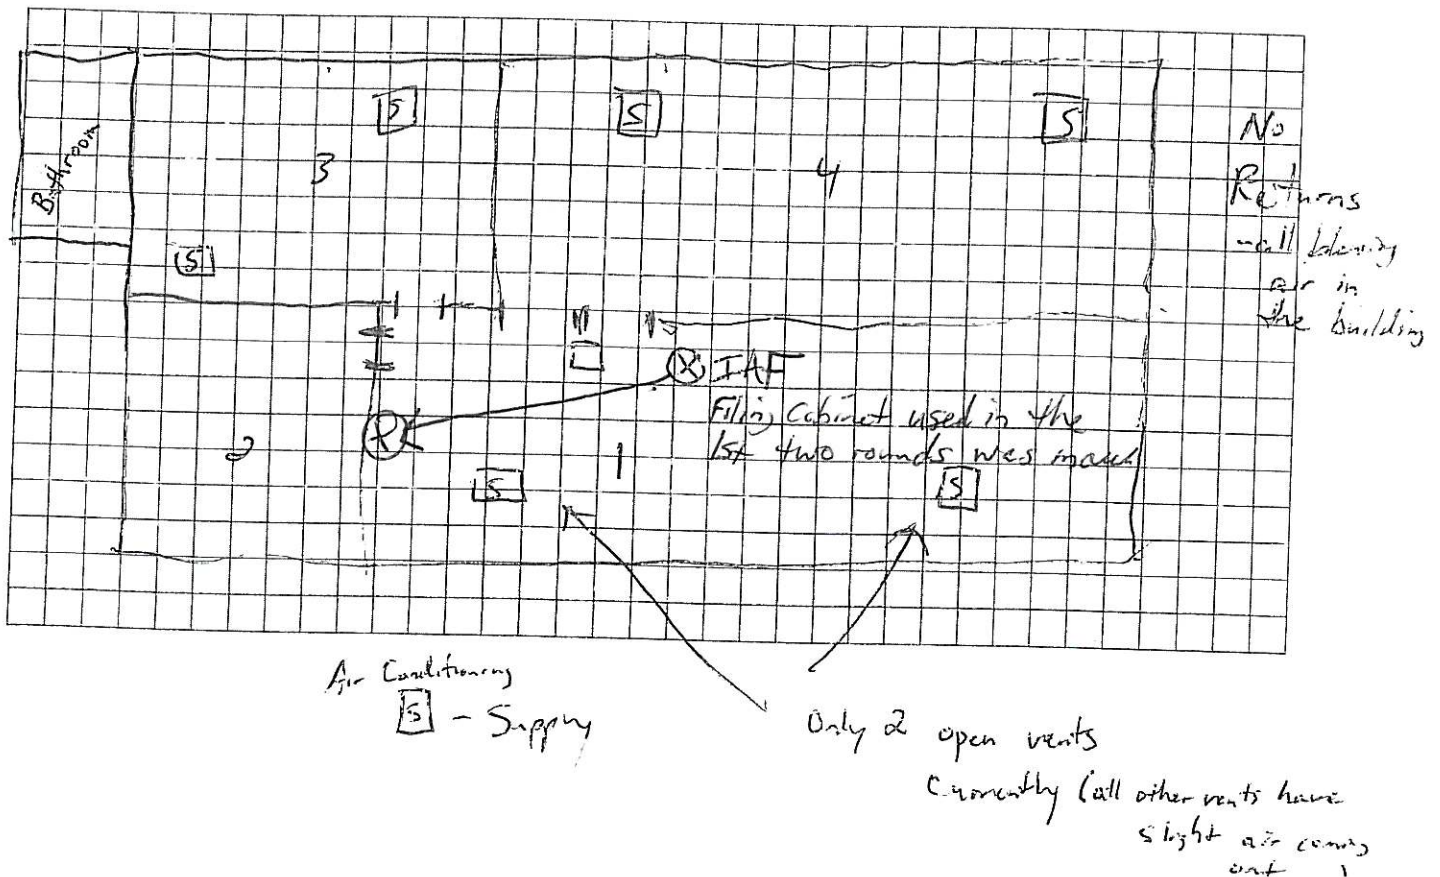 S
S
S
No
Returns
- all blowing
air in
the building
Bathroom
3
4
S
X IAF
Filing Cabinet used in the
1st two rounds was moved
2
1
S
S
Air Conditioning
S - Supply
Only 2 open vents
Currently (all other vents have
slight air coming
out